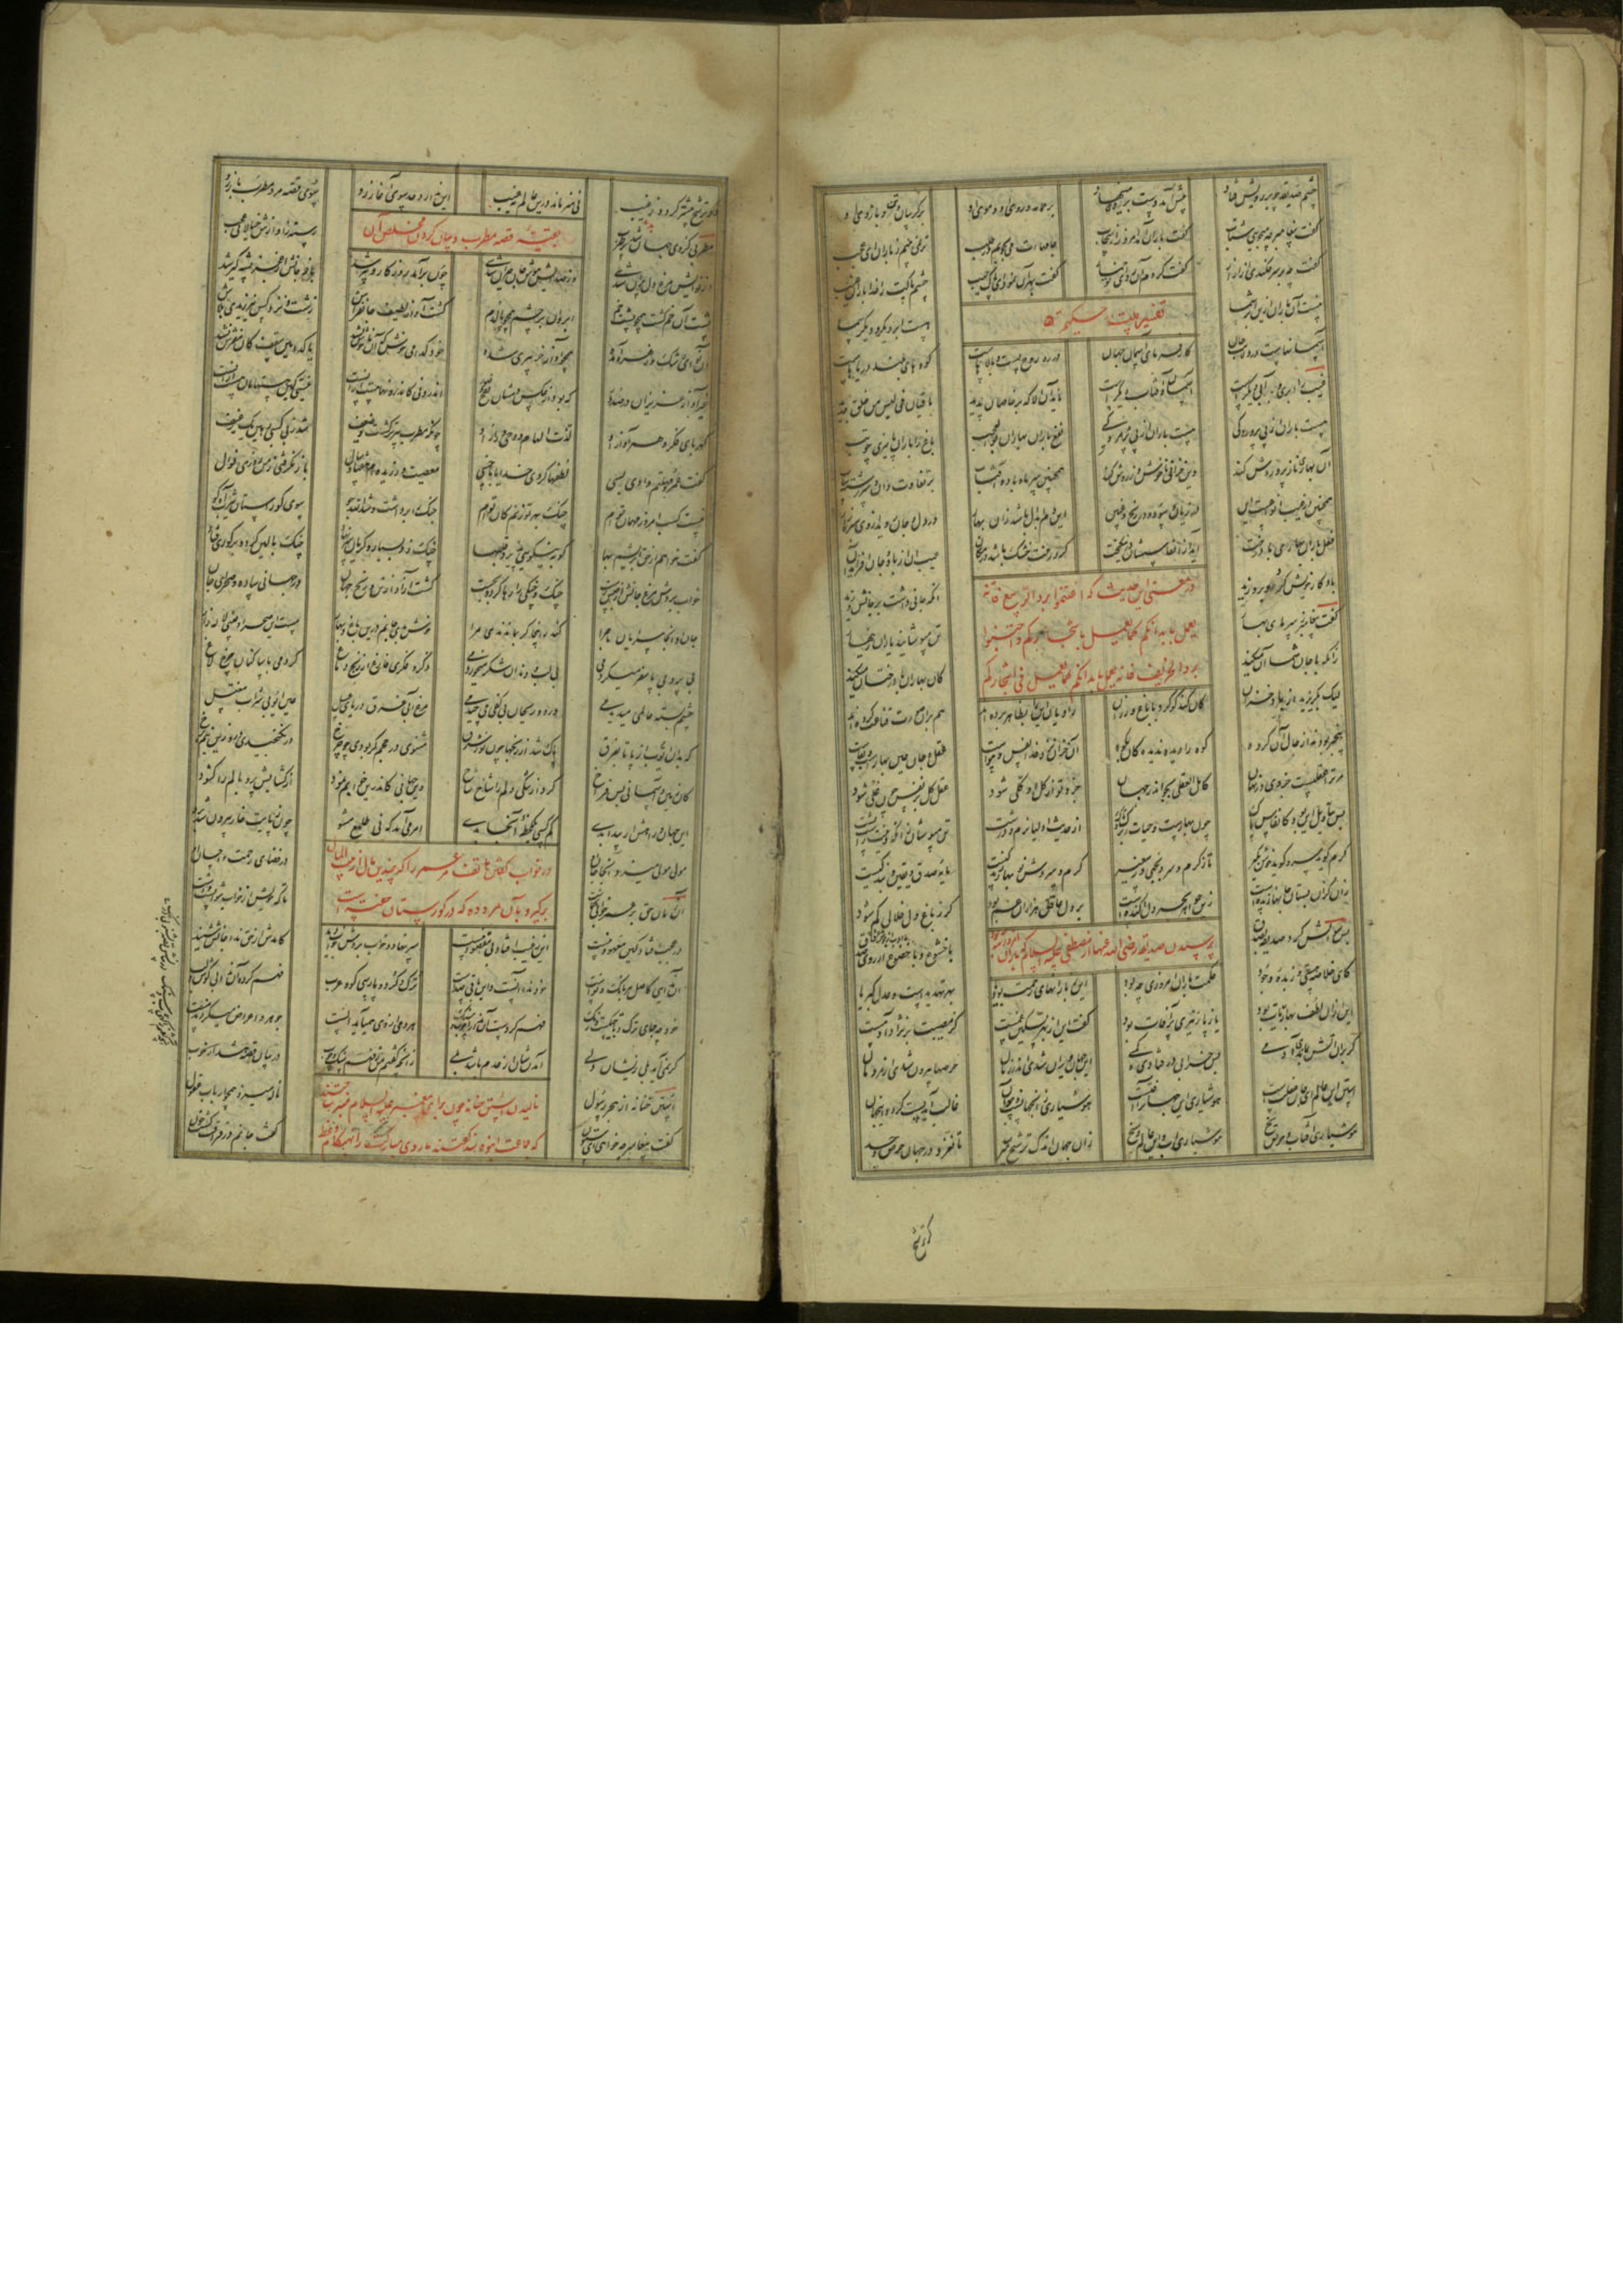 چشم صدیقه چو بر رویش فتاد پیش آمد دست بر وی می نهاد بر عمامه و روی او و موی او بر گریبان و بر و بازوی او
گفت پیغامبر چه میجویی شتاب گفت باران آمد امروز از سحاب جامهات می بجویم در طلب تر نمی بینم ز باران ای عجب
گفت چه بر سر فکندی از ازار گفت کردم آن ردای تو خمار گفت بهر آن نمود ای پاک جیب چشم پاکت را خدا باران غیب
نیست آن باران ازین ابر شما هست ابر دیگر و دیگر سما
تفسیر بیت حکیم
آسمانهاست در ولایت جان کارفرمای آسمان جهان در ره روح پست و بالاهاست کوه های بلند و دریاهاست
غیب را ابری و آبی دیگرست آسمان و آفتاب دیگرست ناید آن الا که بر خاصان پدید باقیان فی لبس من خلق جدید
هست باران از پی پروردگی هست باران از پی پژمردگی نفع باران بهاران بوالعجب باغ را باران پاییزی چو تب
آن بهاری ناز پروردش کند وین خزانی ناخوش و زردش کند همچنین سرما و باد و آفتاب بر تفاوت دان و سررشته بیاب
همچنین در غیب انواعست این در زیان و سود و در ربح و غبین این دم ابدال باشد زان بهار در دل و جان روید از وی سبزه زار
فعل باران بهاری با درخت آید از انفاسشان در نیکبخت گر درخت خشک باشد در مکان عیب آن از باد جان افزا مدان
باد کار خویش کرد و بر وزید آنکه جانی داشت بر جانش گزید
در معنی این حدیث که اغتنموا برد الربیع فانه
یعمل بابدانکم کما یعمل باشجارکم و اجتنبوا
برد الخریف فانه یعمل بابدانکم کما یعمل فی اشجارکم
گفت پیغامبر ز سرمای بهار تن مپوشانید یاران زینهار
زانکه با جان شما آن میکند کان بهاران با درختان میکند
لیک بگریزید از برد خزان کان کند کو کرد با باغ و رزان راویان این را بظاهر برده اند هم بران صورت قناعت کرده اند
بیخبر بودند از حال آن گروه کوه را دیده ندیده کان بکوه آن خزان نزد خدا نفس و هواست عقل و جان عین بهارست و بقاست
مر ترا عقلیست جزوی در نهان کامل العقلی بجو اندر جهان جزو تو از کل او کلی شود عقل کل بر نفس چون غلی شود
پس بتاویل این بود کانفاس پاک چون بهارست و حیات برگ و تاک از حدیث اولیا نرم و درشت تن مپوشان زانکه دینت راست پشت
گرم گوید سرد گوید خوش بگیر تا ز گرم و سرد بجهی وز سعیر گرم و سردش نوبهار زندگیست مایه صدق و یقین و بندگیست
زان کزان بستان جانها زنده است زین جواهر بحر دل آکنده است بر دل عاقل هزاران غم بود گر ز باغ دل خلالی کم شود
پرسیدن صدیقه رضی الله عنها از مصطفی علیه السلام که باران امروزینه
پس سوالش کرد صدیقه ز صدق با خشوع و با ادب از جوش عشق
کای خلاصه هستی و زبده وجود حکمت باران امروزی چه بود این ز بارانهای رحمت بود یا بهر تهدیدست و عدل کبریا
این ازان لطف بهاریات بود یا ز پاییزی پر آفات بود گفت این از بهر تسکین غمست کز مصیبت بر نژاد آدمست
گر بران آتش بماندی آدمی بس خرابی در فتادی و کمی این جهان ویران شدی اندر زمان حرصها بیرون شدی از مردمان
استن این عالم ای جان غفلتست هوشیاری این جهان را آفتست هوشیاری زان جهانست و چو آن غالب آید پست گردد این جهان
هوشیاری آفتاب و حرص یخ هوشیاری آب و این عالم وسخ زان جهان اندک ترشح میرسد تا نغرد در جهان حرص و حسد
گر ترشح بیشتر گردد ز غیب نی هنر ماند درین عالم نه عیب این ندارد حد سوی آغاز رو سوی قصه مرد مطرب باز رو
بقیه قصه مطرب و بیان کردن مخلص آن
مطربی کز وی جهان شد پر طرب رسته ز آوازش خیالات عجب
از نوایش مرغ دل پران شدی وز صدایش هوش جان حیران شدی چون برآمد روزگار و پیر شد باز جانش از عجز پشه گیر شد
پشت او خم گشت همچو پشت خم ابروان بر چشم همچو پالدم گشت آواز لطیف جانفزاش زشت و نزد کس نیرزیدی بلاش
آن نوای رشک زهره آمده همچو آواز خر پیری شده خود کدامین خوش که آن ناخوش نشد یا کدامین سقف کان مفرش نشد
غیر آواز عزیزان در صدور که بود از عکس دمشان نفخ صور اندرونی کاندرونها مست ازوست نیستی کین هستهامان هست ازوست
کهربای فکر و هر آواز او لذت الهام و وحی و راز او چونکه مطرب پیرتر گشت و ضعیف شد ز بی کسبی رهین یک رغیف
گفت عمر و مهلتم دادی بسی لطفها کردی خدایا با خسی معصیت ورزیده ام هفتاد سال باز نگرفتی ز من روزی نوال
نیست کسب امروز مهمان توم چنگ بهر تو زنم کان توم چنگ را برداشت و شد الله جو سوی گورستان یثرب آه گو
گفت خواهم از حق ابریشم بها کو بنیکویی پذیرد قلبها چنگ زد بسیار و گریان سر نهاد چنگ بالین کرد و بر گوری فتاد
خواب بردش مرغ جانش از حبس رست چنگ و چنگی را رها کرد و بجست گشت آزاد از تن و رنج جهان در جهان ساده و صحرای جان
جان او آنجا سرایان ماجرا کاندر اینجا گر بماندندی مرا خوش بدی جانم درین باغ و بهار مست این صحرا و غیبی لاله زار
بی پر و بی پا سفر میکردمی بی لب و دندان شکر میخوردمی ذکر و فکری فارغ از رنج دماغ کردمی با ساکنان چرخ لاغ
چشم بسته عالمی میدیدمی ورد و ریحان بی کفی میچیدمی مرغ آبی غرق دریای عسل عین ایوبی شراب و مغتسل
که بدان ایوب از پا تا بفرق پاک شد از رنجها چون نور شرق مثنوی در حجم گر بودی چو چرخ در نگنجیدی درو زین نیم برخ
کان زمین و آسمان بس فراخ کرد از تنگی دلم را شاخ شاخ وین جهانی کاندرین خوابم نمود از گشایش پر و بالم را گشود
این جهان و راهش ار پیدا بدی کم کسی یک لحظه آنجا بدی امر می آمد که نی طامع مشو چون ز پایت خار بیرون شد برو
مولی مولی میزد آنجا جان او در فضای رحمت و احسان او
در خواب گفتن هاتف مر عمر را که چندین مال از بیت المال
برگیر و بآن مرد ده که در گورستان خفته است
آن زمان حق بر عمر خوابی گماشت تا که خویش از خواب نتوانست داشت
در عجب افتاد کین معهود نیست این ز غیب افتاد بی مقصود نیست سر نهاد و خواب بردش خواب دید کامدش از حق ندا جانش شنید
آن ندایی کاصل هر بانگ و نواست خود ندا آنست و این باقی صداست ترک و کرد و پارسی گو و عرب فهم کرده آن ندا بی گوش و لب
خود چه جای ترک و تاجیک است و زنگ فهم کردست آن ندا را چوب و سنگ هر دمی از وی همی آید الست جوهر و اعراض میگردند هست
گر نمی آید بلی زیشان ولی آمدنشان از عدم باشد بلی زانچه گفتم من ز فهم سنگ و چوب در بیانش قصه هش دار خوب
نالیدن ستن حنانه چون برای پیغمبر علیه السلام منبر ساختند
که جماعت انبوه شد گفتند ما روی مبارکت را بهنگام وعظ
استن حنانه از هجر رسول ناله میزد همچو ارباب عقول
گفت پیغامبر چه خواهی ای ستون گفت جانم در فراقت گشت خون